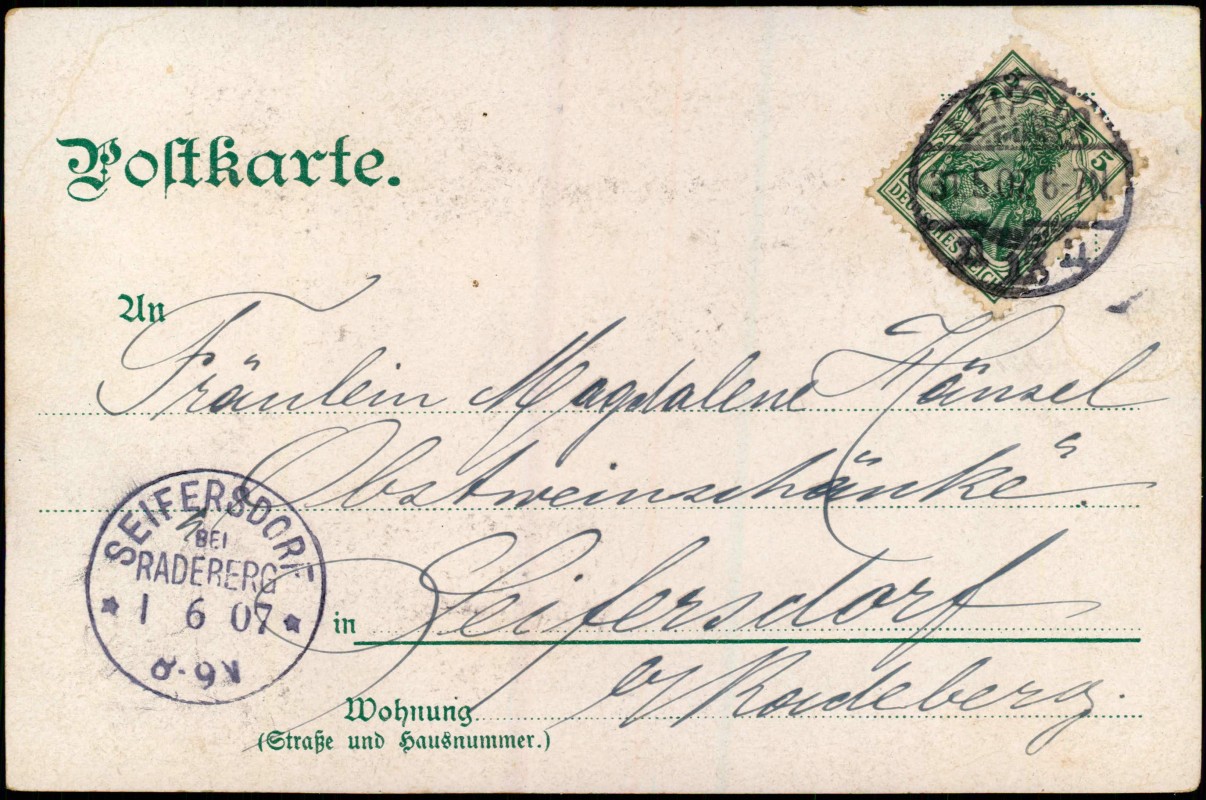 Postkarte.
5
5
DEUTSCHES REICH
6-7
An
Fräulein Magdalene Hänsel
"Obstweinschänke".
SEIFERSDORF
BEI
RADEBERG
1 6 07
8-9V
in Seifersdorf
b/Radeberg.
Wohnung
(Straße und Hausnummer.)